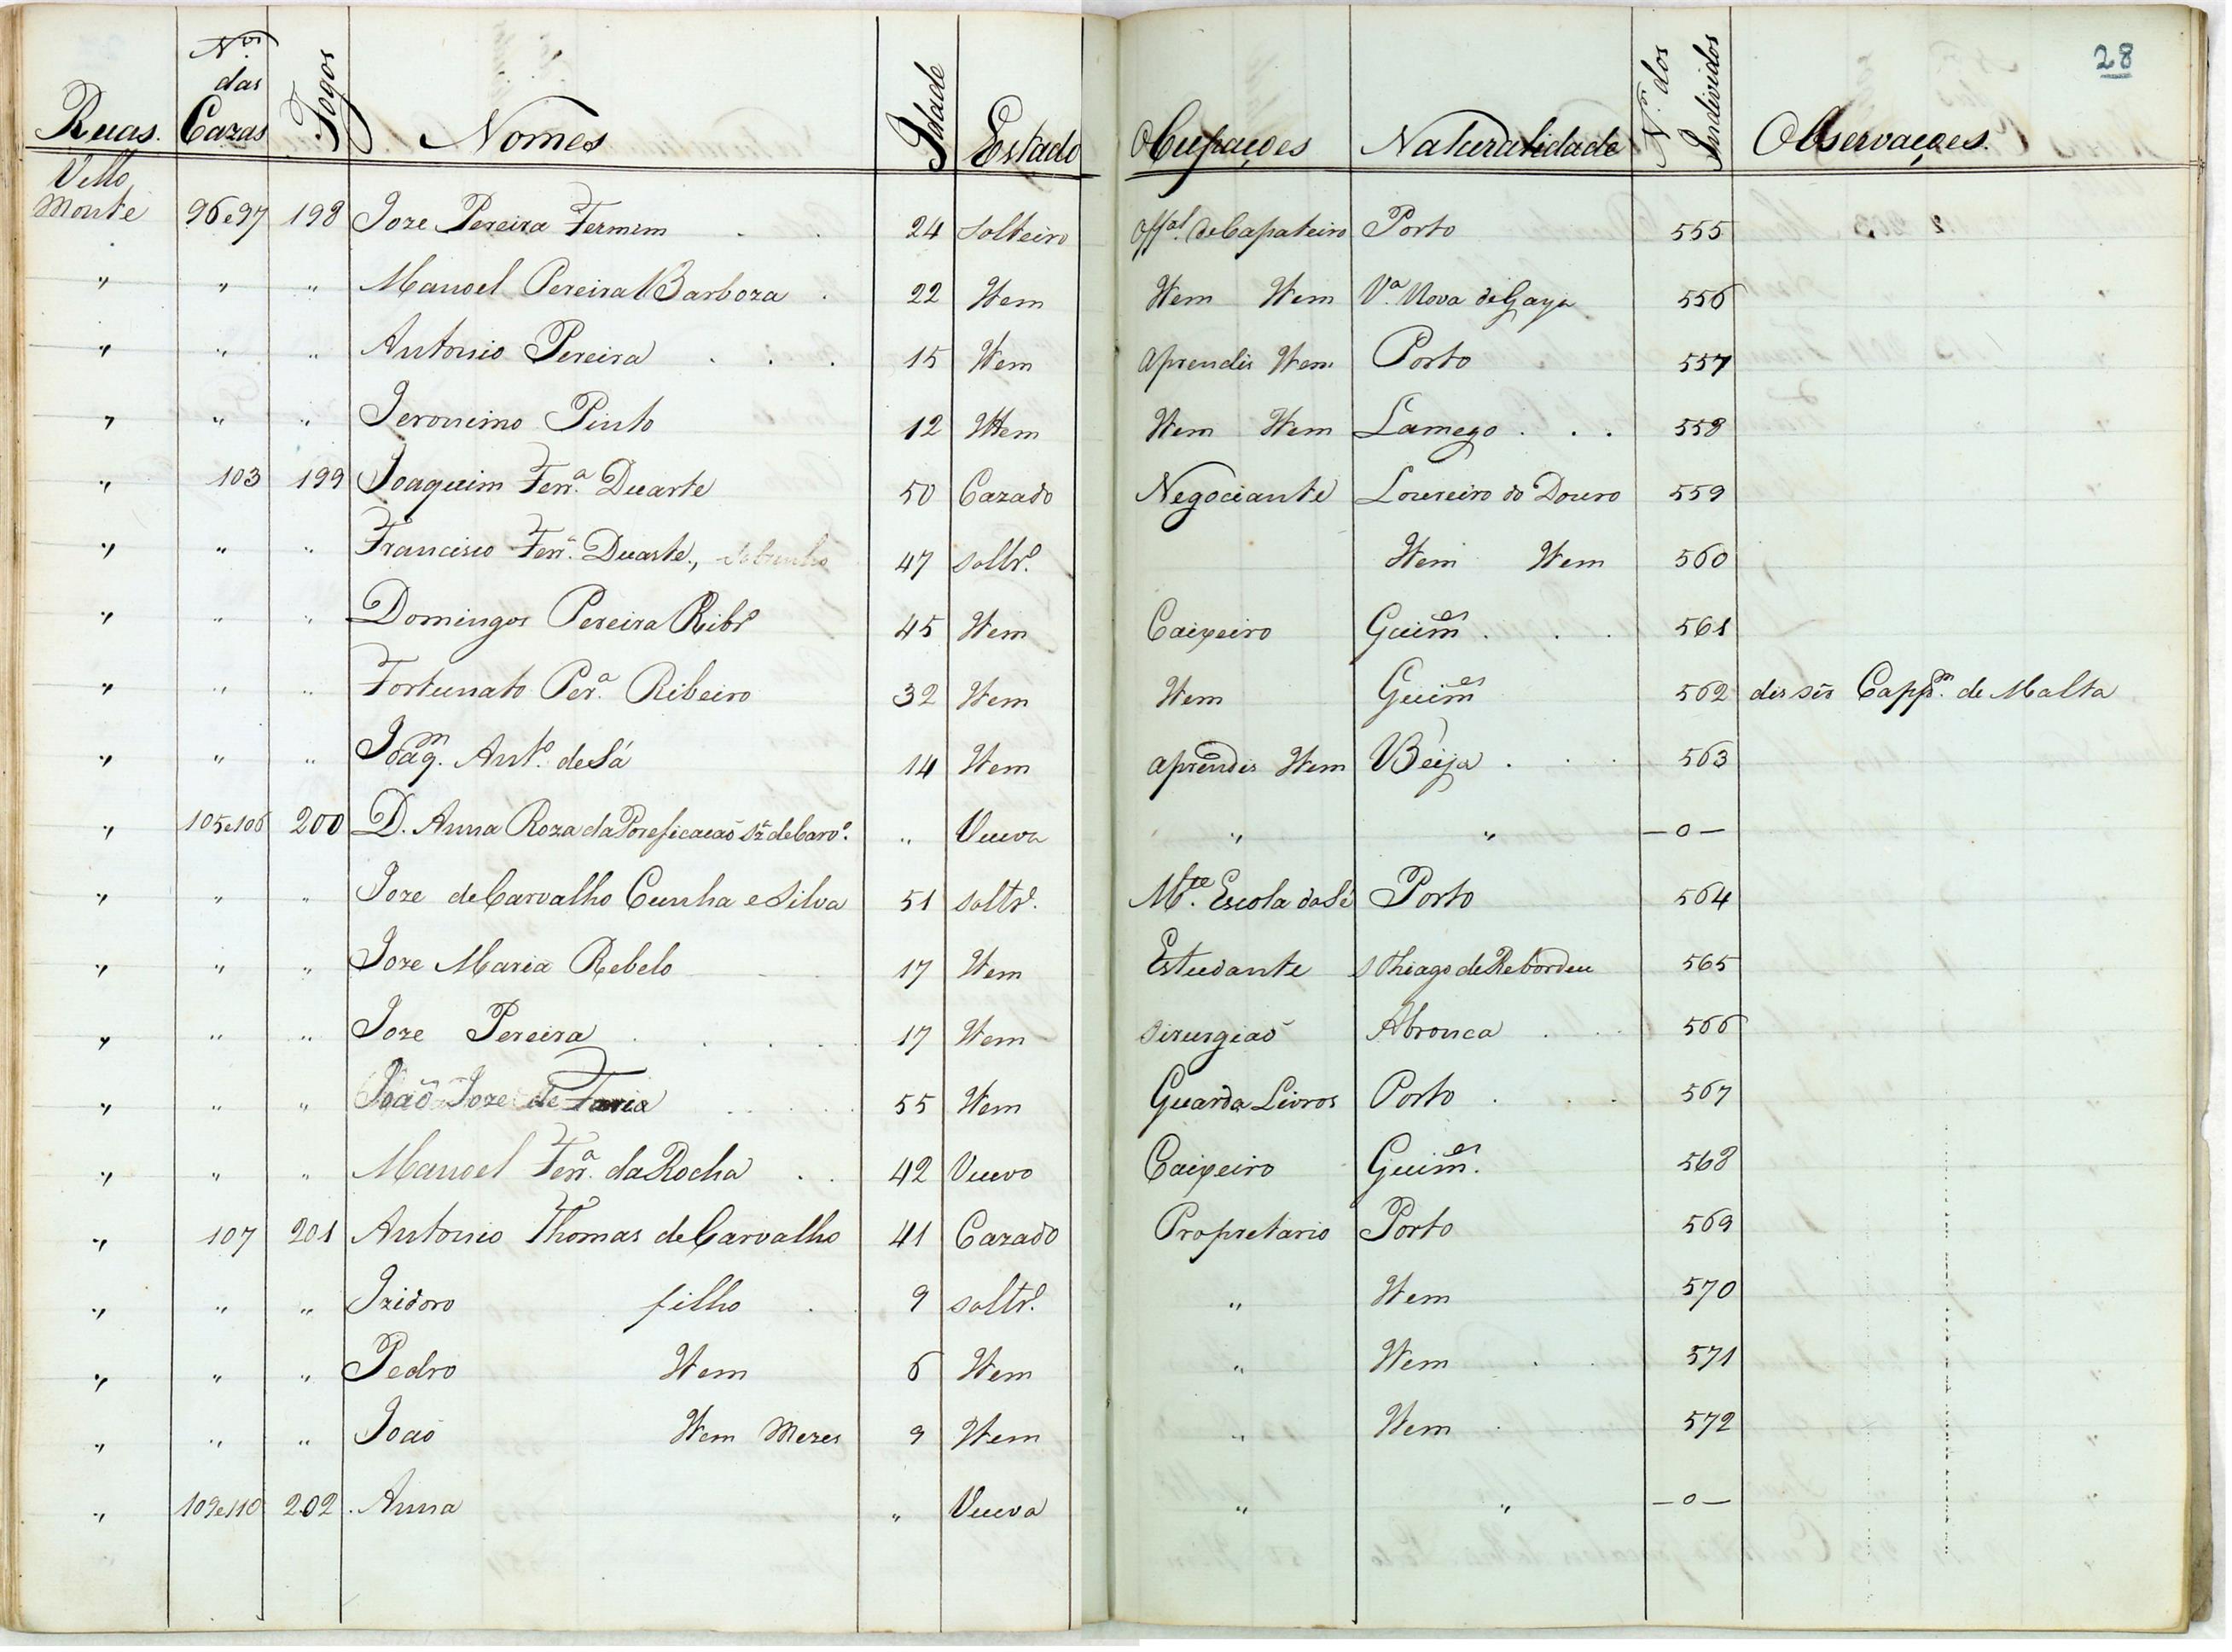 28
Ruas. Nos. das Cazas Fogos Nomes Idade Estado Ocupaçoes Naturalidade Nos. dos Indevividos Observaçoes.
Vello
Monte 96e97 198 Joze Pereira Fermim 24 solteiro Offal. de Capateiro Porto 555
" " " Manoel Pereira Barboza 22 Item Item Item Va. Nova de Gaya 556
" " " Antonio Pereira 15 Item Aprendis Item Porto 557
" " " Jeronimo Pinto 12 Item Item Item Lamego 558
" 103 199 Joaquim Ferra. Duarte 50 Cazado Negociante Loureiro do Douro 559
" " " Francisco Ferra. Duarte, sobrinho 47 soltro. Item Item 560
" " " Domingos Pereira Ribro 45 Item Caixeiro Guimes 561
" " " Fortunato Pera. Ribeiro 32 Item Item Guimes 562 dis sêr de Malta
" " " Joaqm. Anto. de Sá 14 Item aprendis Item Beija 563
" " 105e106 200 D. Anna Roza da Poreficacaõ Sa. de Caro. " Viuva " " —o—
" " " Joze de Carvalho Cunha e Silva 51 soltro. Mte. Escola da Sé Porto 564
" " " Joze Maria Rebelo 17 Item Estudante S Thiago de Rebordeu 565
" " " Joze Pereira 17 Item Sirurgiaõ Abronca 566
" " " Joaõ Joze de Faria 55 Item Guarda Livros Porto 567
" " " Manoel Ferra. da Rocha 42 Viuvo Caixeiro Guimes. 568
" 107 201 Antonio Thomas de Carvalho 41 Cazado Propretario Porto 569
" " " Izidoro filho 9 soltro. " Item 570
" " " Pedro Item 6 Item " Item 571
" " " Joaõ Item Mezes 9 Item " Item 572
" 109e110 202 Anna " Viuva " " —o—